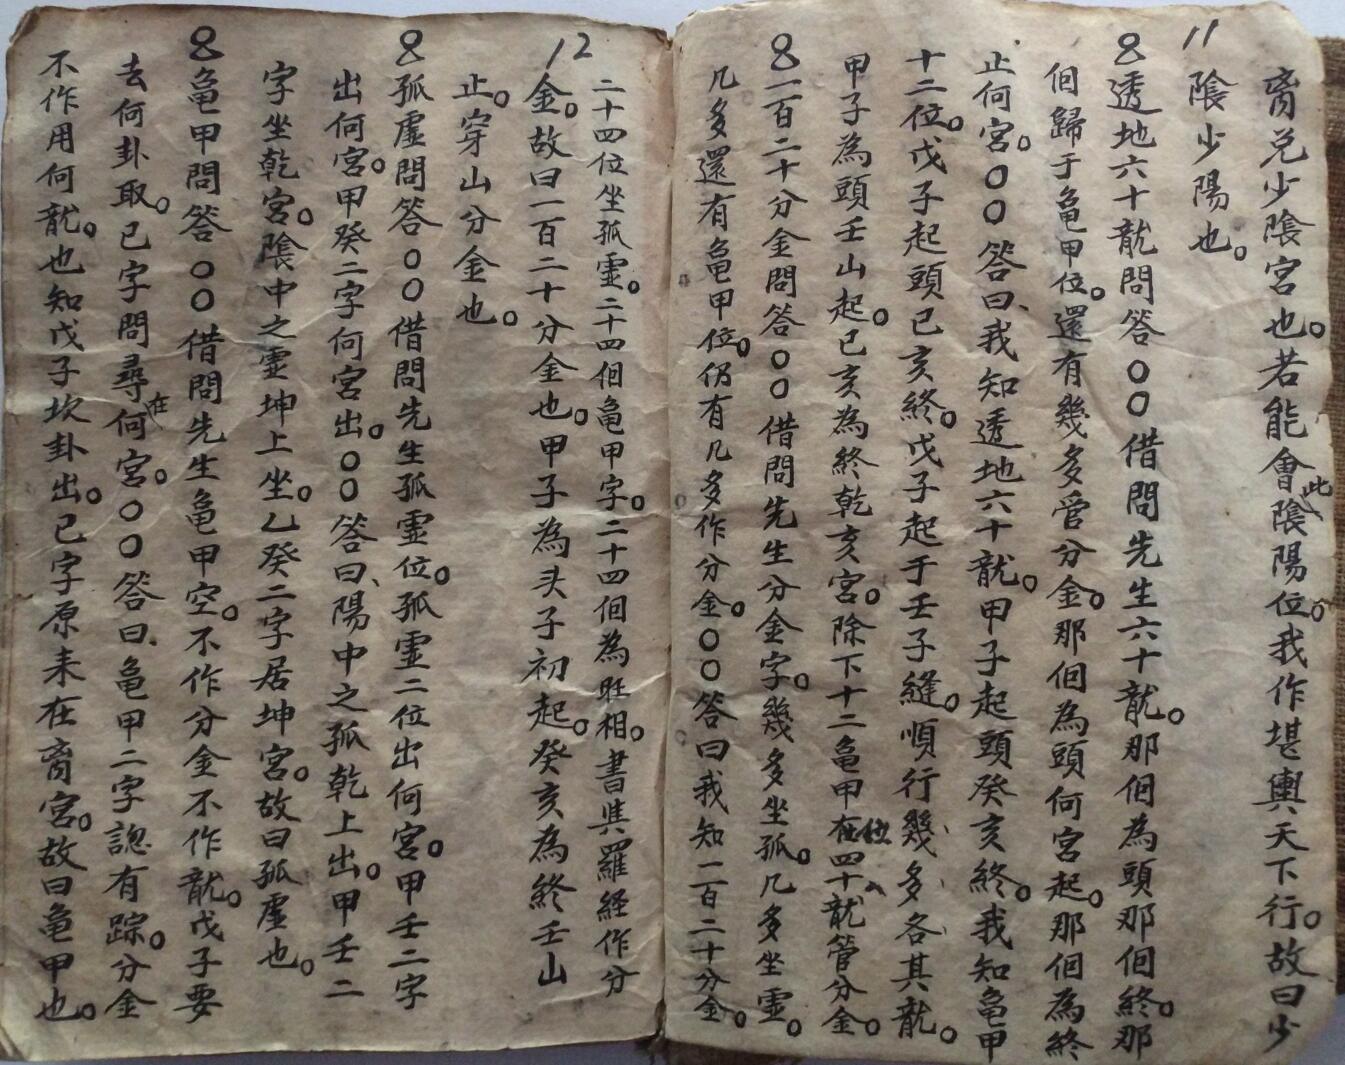 11
啇兌少隂宮也。若能會此隂陽位。我作堪輿天下行。故曰少
隂少陽也。
透地六十龍問答〇〇借問先生六十龍。那佪為頭那佪終。那
佪歸于亀甲位。還有幾多管分金。那佪為頭何宮起。那佪為終
止何宮。〇〇答曰、我知透地六十龍。甲子起頭癸亥終。我知亀甲
十二位。戊子起頭已亥終。戊子起于壬子縫。順行幾多各其龍。
甲子為頭壬山起。已亥為終乾亥宮。除下十二亀甲位。四十八龍管分金。
一百二十分金問答〇〇借問先生分金字。幾多坐孤。几多坐霊。
几多還有亀甲位。仍有几多作分金。〇〇答曰我知一百二十分金。
12
二十四位坐孤霊。二十四佪亀甲字。二十四佪為旺相。書其羅経作分
金。故曰一百二十分金也。甲子為头子初起。癸亥為終壬山
止。穿山分金也。
孤虛問答〇〇借問先生孤霊位。孤霊二位出何宮。甲壬二字
出何宮。甲癸二字何宮出。〇〇答曰、陽中之孤乾上出。甲壬二
字坐乾宮。隂中之霊坤上坐。乙癸二字居坤宮。故曰孤虛也。
亀甲問答〇〇借問先生亀甲空。不作分金不作龍。戊子要
去何卦取。已字問尋在何宮。〇〇答曰、亀甲二字総有踪。分金
不作用何龍。也知戊子坎卦出。已字原来在啇宮。故曰亀甲也。